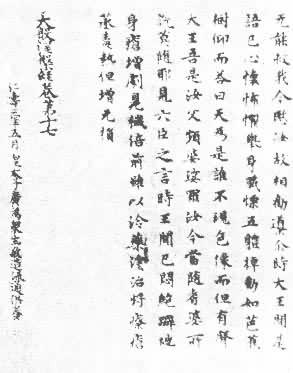 无能救我今愍汝故相勸導尒時大王聞是
語已心懷怖懼舉身戰慄五體掉動如芭蕉
樹仰而答曰天為是誰不現色像而但有聲
大王吾是汝父頻婆娑羅汝今當隨耆婆所
說莫隨耶見六臣之言時王聞已悶絕躃地
身瘡增劇臭穢倍前雖以冷藥塗治瘡
蒸毒熱但增无損
大般涅槃經卷第十七
仁壽三年五月 敬造流通供養